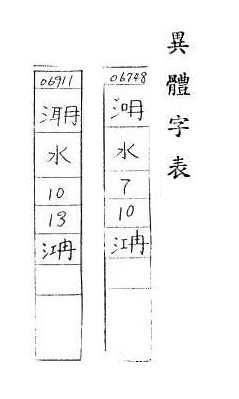 異體字表
06748
水
7
10
06911
水
10
13